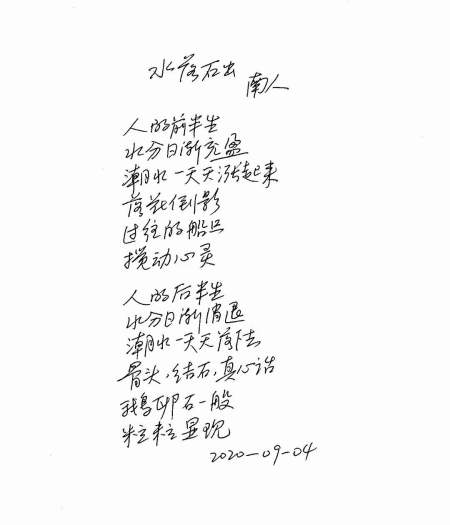 水落石出
南人
人的前半生
水分日渐充盈
潮水一天天涨起来
落花倒影
过往的船只
搅动心灵
人的后半生
水分日渐消退
潮水一天天落下去
骨头，结石，真心话
鹅卵石一般
粒粒显现
2020-09-04